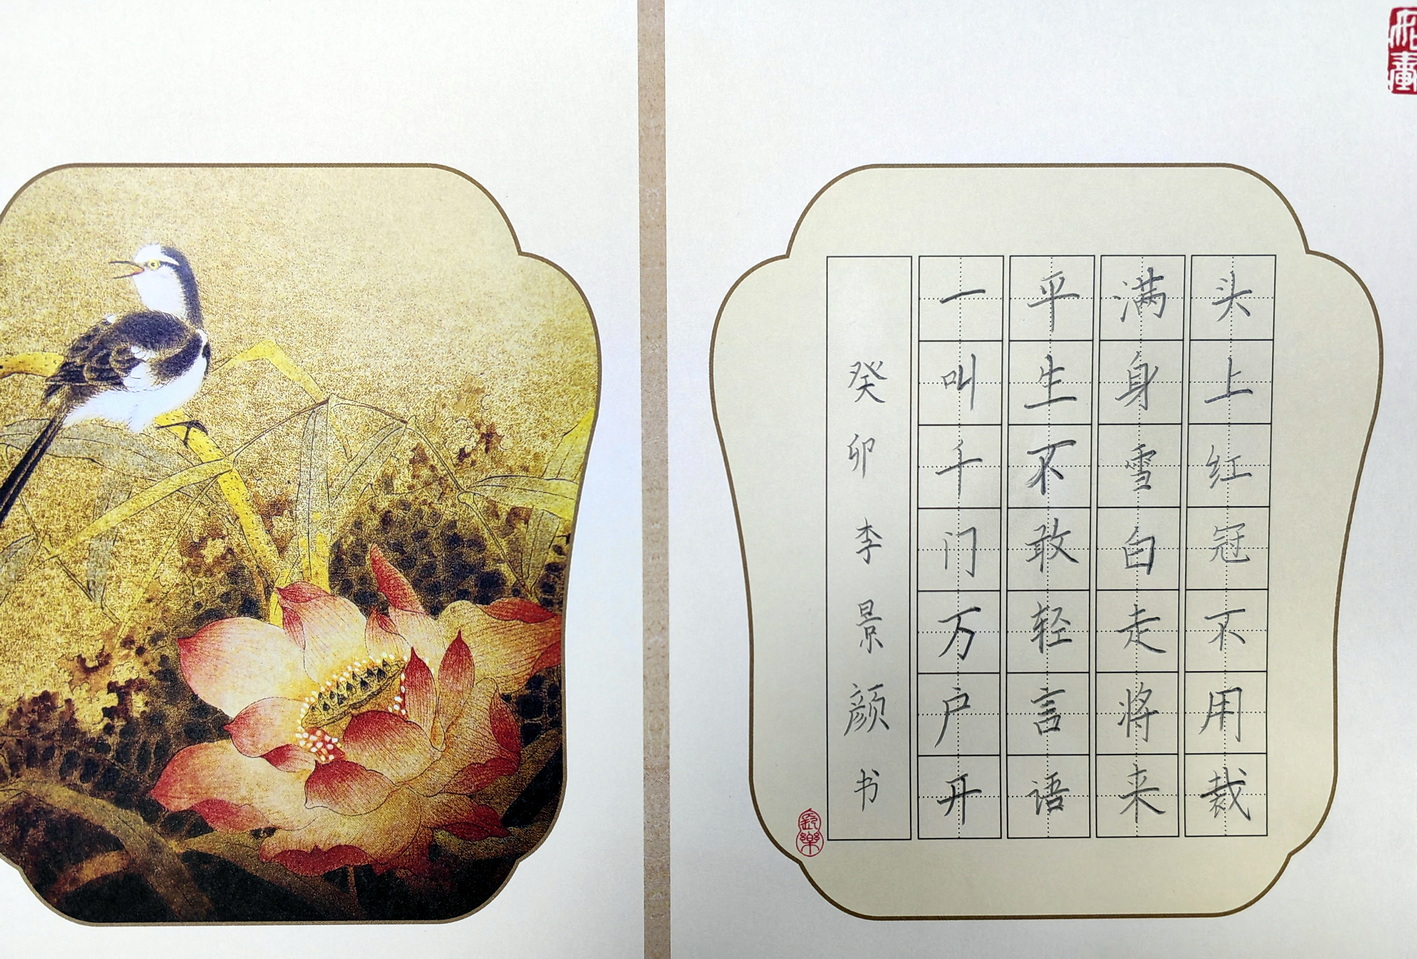 头上红冠不用裁
满身雪白走将来
平生不敢轻言语
一叫千门万户开
癸卯李景颜书